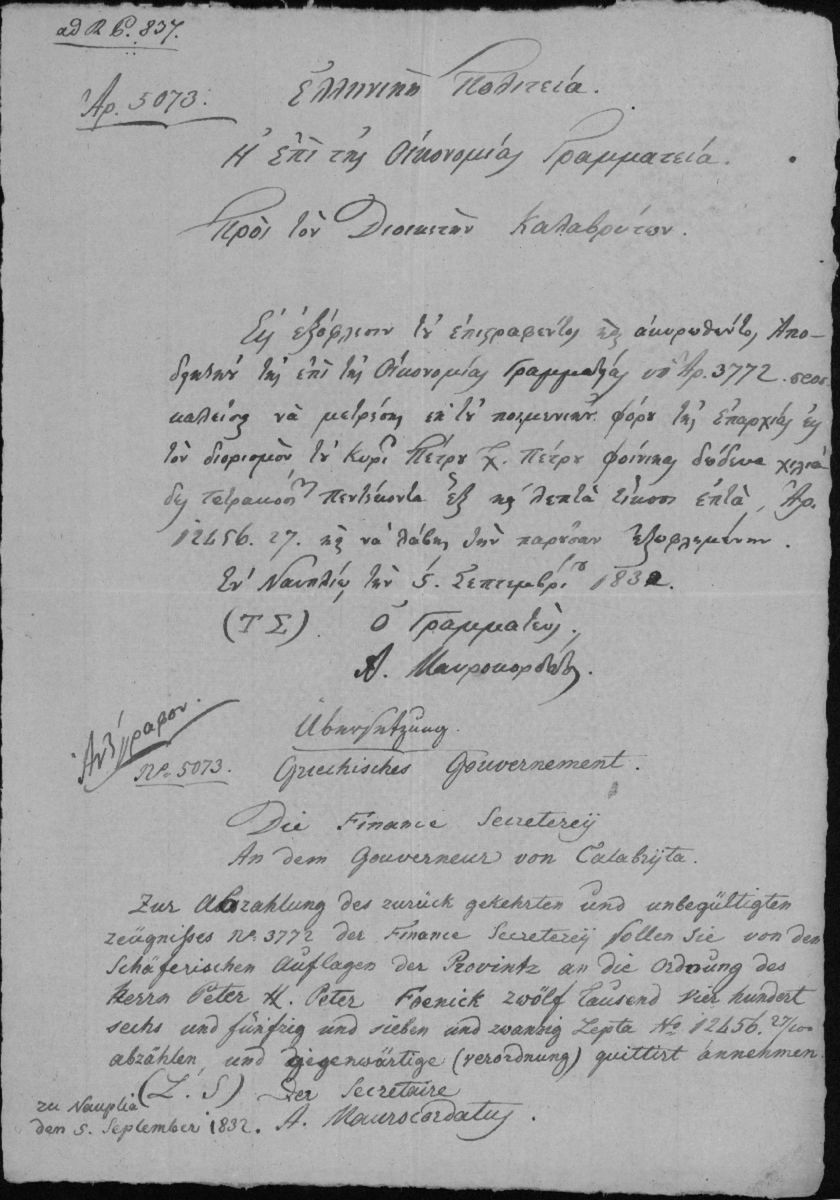 ad R P. 837.
Ἀρ. 5073.
Ἑλληνικὴ Πολιτεία.
Ἡ ἐπὶ τῆς Οἰκονομίας Γραμματεία.
Πρὸς τὸν Διοικητὴν Καλαβρύτων.
Εἰς ἐξόφλησιν τοῦ ἐπιστραφέντος καὶ ἀκυρωθέντος Ἀπο-
δεικτικοῦ τῆς ἐπὶ τῆς Οἰκονομίας Γραμματείας ὑπ' Ἀρ. 3772. προσ
καλεῖσαι νὰ μετρήσῃς ἐκ τοῦ ποιμενικοῦ φόρου τῆς ἐπαρχίας εἰς
τὸν διορισμὸν τοῦ Κυρίου Πέτρου Χ. Πέτρου Φοίνικος δώδεκα χιλιά
δες τετρακόσια πεντήκοντα ἓξ καὶ λεπτὰ εἴκοσι ἑπτὰ, Ἀρ.
12456. 27. καὶ νὰ λάβῃς τὴν παροῦσαν ἐξωφλημένην.
Ἐν Ναυπλίῳ τὴν 5. Σεπτεμβρίου 1832.
(Τ Σ) Ὁ Γραμματεὺς,
Α. Μαυροκορδάτος.
Ἀντίγραφον.
Übersetzung.
No. 5073. Griechisches Gouvernement.
Die Finance Secreterey
An dem Gouverneur von Calabryta.
Zur Abzahlung des zurück gekehrten und unbegültigten
zeügnißes No. 3772 der Finance Secreterey sollen Sie von den
Schäferischen Auflagen der Provintz an die Ordnung des
Herrn Peter H. Peter Foenick zwölf tausend vier hundert
sechs und fünfzig und sieben und zwanzig Lepta No. 12456. 27/100
abzählen und gegenwärtige (verordnung) quittirt annehmen.
(L. S) Der Secretaire
zu Nauplia
den 5. September 1832. A. Maurocordatus.